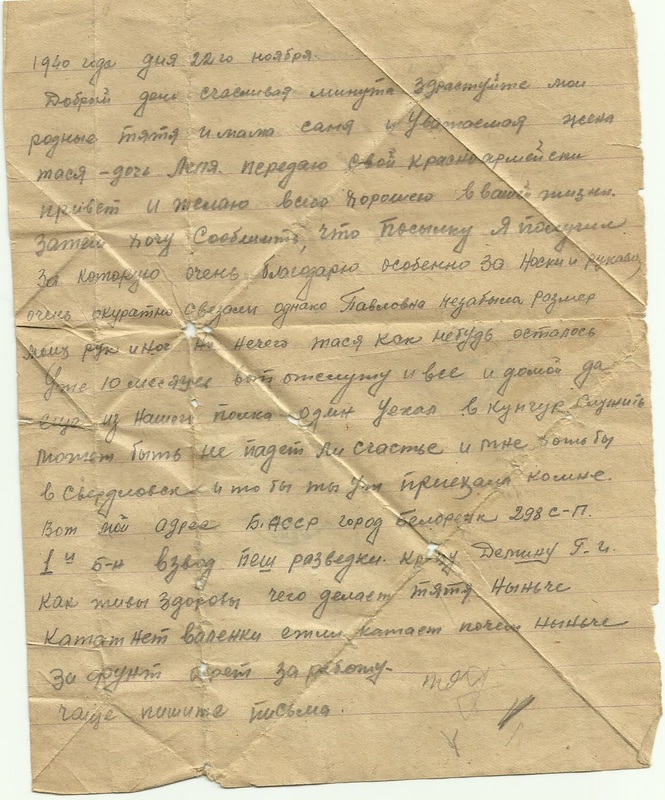 1940 года дня 22го ноября.
Добрый день счастливая минута здраствуйте мои
родные тятя и мама саня и Уважаемая жена
тася – дочь Лепя. передаю свой красноармейски
привет и желаю всего хорошею в вашей жизни.
Затем хочу Сообщить, что посылку я получил.
За которую очень благодарю особенно за носки и рукави
очень окуратно свезали однако Павловна незабыла размер
моих рук и ног но нечего тася как небудь осталось
Уже 10 месяцев вот отслужу и все и домой да
еще из нашего полка один уехал в кунгур Служить
может быть не падет ли счастье и мне хотябы
в Свердловск и то бы ты уж приехала комне.
Вот мой адрес Б.АССР город Белорецк 298 с-П.
1й б-н взвод пеш разведки. кр-цу Демину Г-и.
как живы здоровы чего делает тятя Ныньче
катат нет валенки если катает почем ныньче
За фунт берет за работу-
чаще пишите письма.